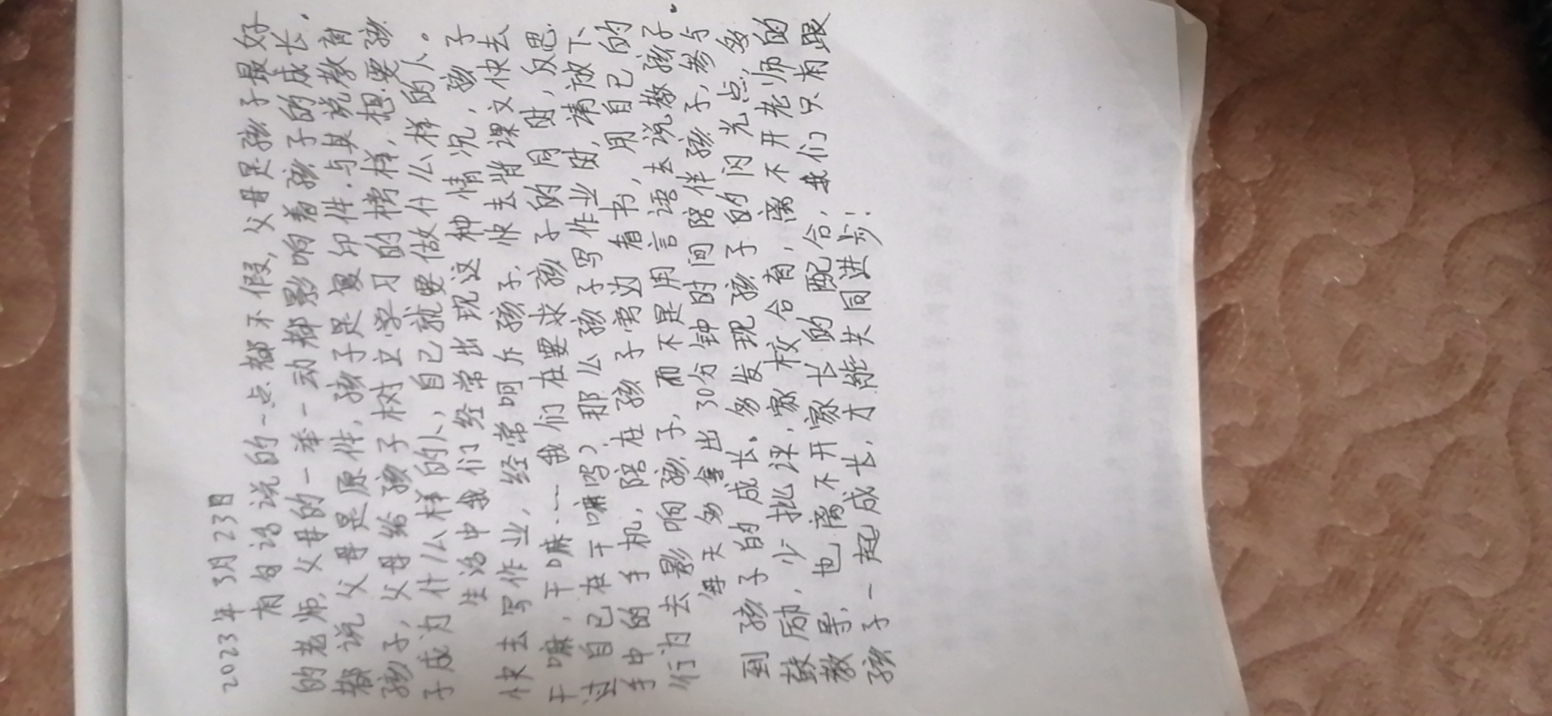 2023年3月23日
有句话说的一点都不假,父母是孩子最好
的老师,父母的一举一动都影响着孩子的成长,
都说父母是原件,孩子是复印件.与其说教育
孩子,父母给孩子树立学习的榜样,想要孩
子成为什么样的人,自己就要做什么样的人。
生活中我们经常出现这种情况,孩子
快去写作业,经常呵斥孩子.快去背课文快去
干嘛,干嘛.…我们在要求孩子的同时,反思
过自己在干嘛吗?那么孩子写作业时,请放下
手中的手机,陪在孩子旁边看书,用自己的
行为去影响孩子,而不是用言语去说教孩子。
每天多拿出30分钟时间陪伴孩子,参与
到孩子的成长。多发现孩子的闪光点多
鼓励,少批评,家校合育,离不开老师的
教导,也离不开家长的配合,我们只有跟
孩子一起成长,才能共同进步!